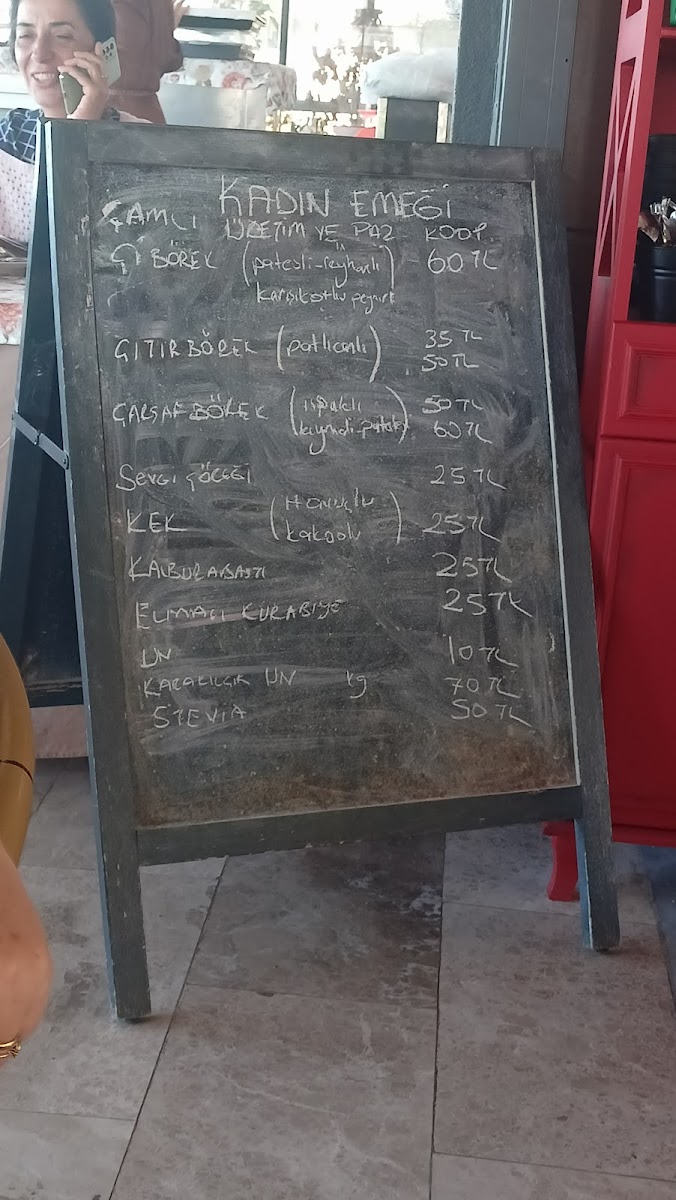 KADIN EMEĞİ
ÇAMCI ÜRETİM VE PAZ KOOP.
Çİ BÖREK (patesli-reyhanlı) 60 TL
karışıkotlu peynirli
ÇITIR BÖREK (patlıcanlı) 35 TL
50 TL
ÇARŞAF BÖREK (ıspaklı 50 TL
kıymalı-patates) 60 TL
SEVGİ ÇÖREĞİ 25 TL
KEK (HAVUÇLU
kakaolu) 25 TL
KALBURABASTI 25 TL
ELMALI KURABİYE 25 TL
UN 10 TL
KARAKILÇIK UN kg 70 TL
STEVIA 50 TL